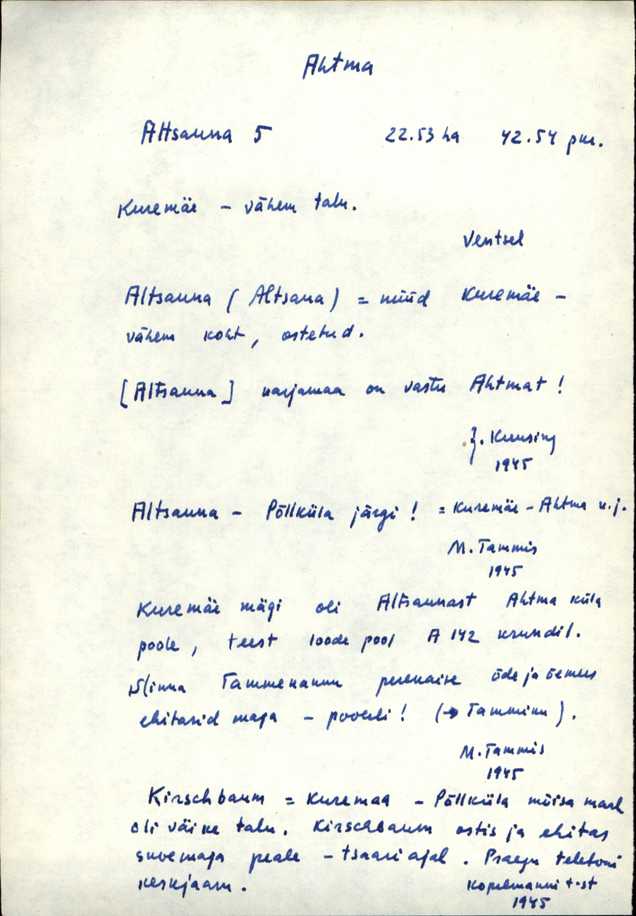 Ahtma
Altsauna 5 22.53 ha 42.54 pm.
Kuremäe - vähem talu.
Ventsel
Altsauna (Altsana) = nüüd Kuremäe -
vähem koht, ostetud.
[Altsauna] karjamaa on vastu Ahtmat!
J. Kuusing
1945
Altsauna - Põllküla järgi! = Kuremäe - Ahtma k.j.
M. Tammis
1945
Kuremäe mägi oli Altsaunast Ahtma küla
poole, teest loode pool A 142 krundil.
Tammekannu perenaise õde ja õemees
ehitasid maja - poodi! (→ Tamminu).
M. Tammis
1945
Kirschbaum = Kuremaa - Põllküla mõisa maal
oli väike talu. Kirschbaum ostis ja ehitas
suvemaja peale - tsaari ajal. Praegu telefoni
keskjaam. Kopelmanni t-st
1945